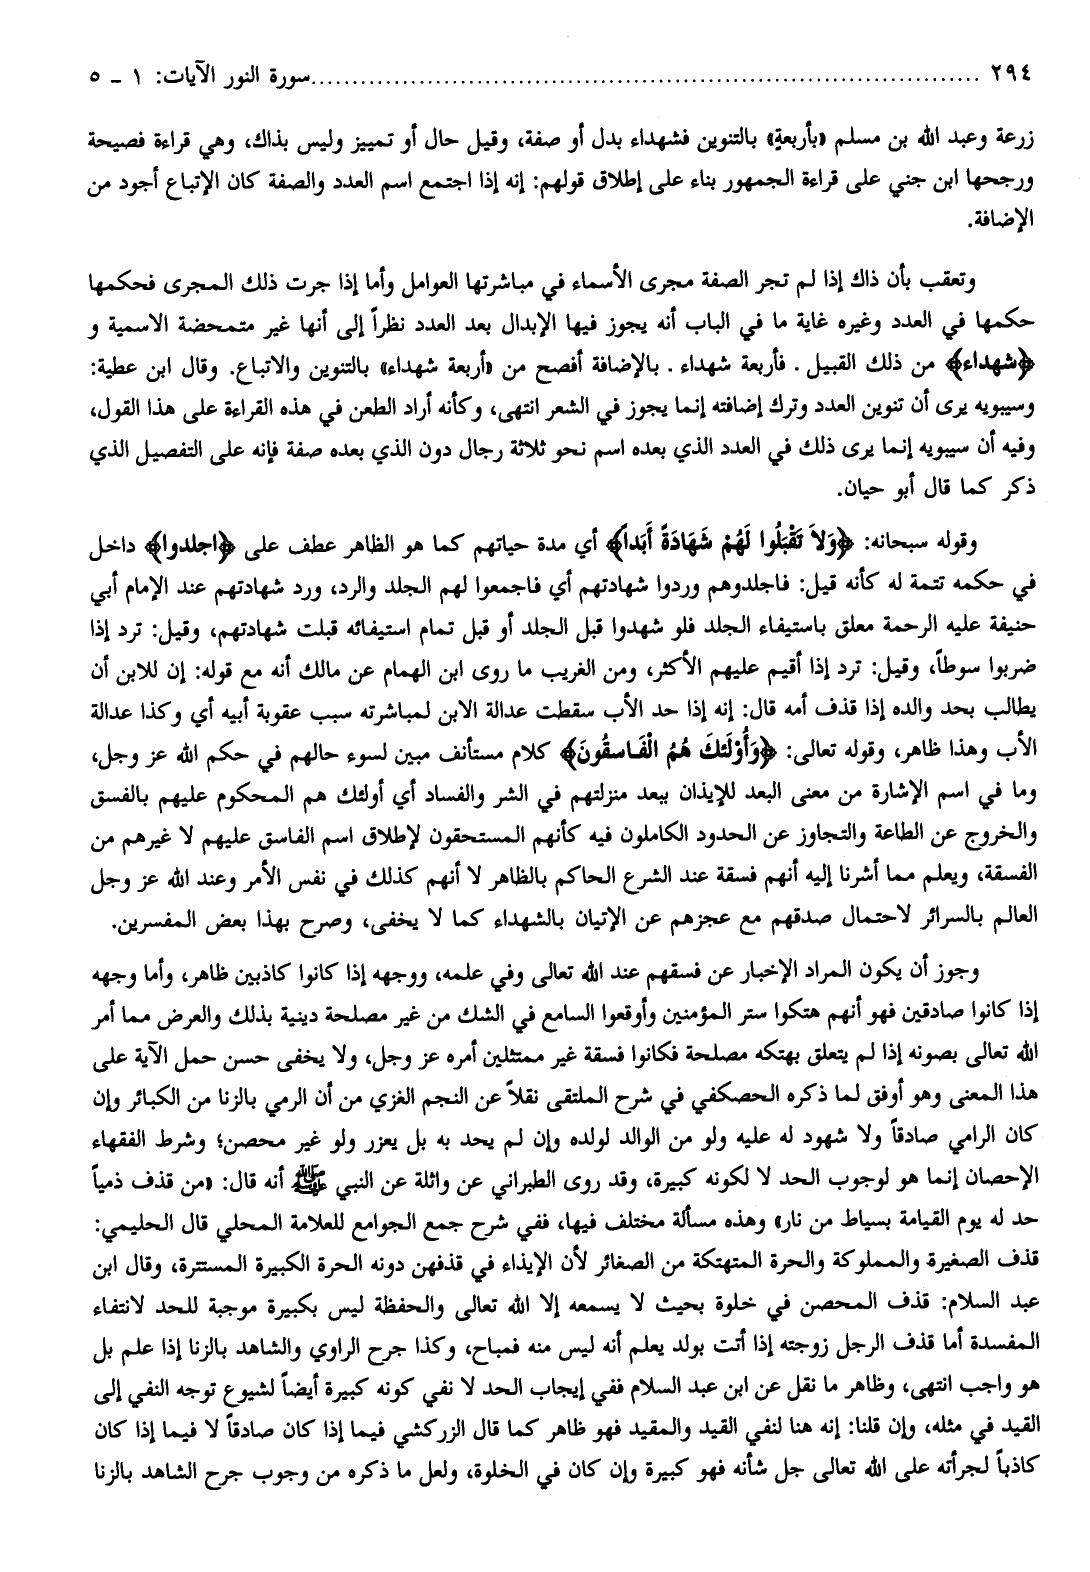 ٢٩٤ ........................................................................ سورة النور الآيات: ١ ـ ٥
زرعة وعبد الله بن مسلم «بأربعةٍ» بالتنوين فشهداء بدل أو صفة، وقيل حال أو تمييز وليس بذاك، وهي قراءة فصيحة
ورجحها ابن جني على قراءة الجمهور بناء على إطلاق قولهم: إنه إذا اجتمع اسم العدد والصفة كان الإتباع أجود من
الإضافة.
وتعقب بأن ذاك إذا لم تجر الصفة مجرى الأسماء في مباشرتها العوامل وأما إذا جرت ذلك المجرى فحكمها
حكمها في العدد وغيره غاية ما في الباب أنه يجوز فيها الإبدال بعد العدد نظراً إلى أنها غير متمحضة الاسمية و
﴿شهداء﴾ من ذلك القبيل . فأربعة شهداء . بالإضافة أفصح من «أربعة شهداء» بالتنوين والاتباع. وقال ابن عطية:
وسيبويه يرى أن تنوين العدد وترك إضافته إنما يجوز في الشعر انتهى، وكأنه أراد الطعن في هذه القراءة على هذا القول،
وفيه أن سيبويه إنما يرى ذلك في العدد الذي بعده اسم نحو ثلاثة رجال دون الذي بعده صفة فإنه على التفصيل الذي
ذكر كما قال أبو حيان.
وقوله سبحانه: ﴿وَلاَ تَقْبَلُوا لَهُمْ شَهَادَةً أَبَداً﴾ أي مدة حياتهم كما هو الظاهر عطف على ﴿اجلدوا﴾ داخل
في حكمه تتمة له كأنه قيل: فاجلدوهم وردوا شهادتهم أي فاجمعوا لهم الجلد والرد، ورد شهادتهم عند الإمام أبي
حنيفة عليه الرحمة معلق باستيفاء الجلد فلو شهدوا قبل الجلد أو قبل تمام استيفائه قبلت شهادتهم، وقيل: ترد إذا
ضربوا سوطاً، وقيل: ترد إذا أقيم عليهم الأكثر، ومن الغريب ما روى ابن الهمام عن مالك أنه مع قوله: إن للابن أن
يطالب بحد والده إذا قذف أمه قال: إنه إذا حد الأب سقطت عدالة الابن لمباشرته سبب عقوبة أبيه أي وكذا عدالة
الأب وهذا ظاهر، وقوله تعالى: ﴿وَأُوْلَئكَ هُمُ الْفَاسقُونَ﴾ كلام مستأنف مبين لسوء حالهم في حكم الله عز وجل،
وما في اسم الإشارة من معنى البعد للإيذان ببعد منزلتهم في الشر والفساد أي أولئك هم المحكوم عليهم بالفسق
والخروج عن الطاعة والتجاوز عن الحدود الكاملون فيه كأنهم المستحقون لإطلاق اسم الفاسق عليهم لا غيرهم من
الفسقة، ويعلم مما أشرنا إليه أنهم فسقة عند الشرع الحاكم بالظاهر لا أنهم كذلك في نفس الأمر وعند الله عز وجل
العالم بالسرائر لاحتمال صدقهم مع عجزهم عن الإتيان بالشهداء كما لا يخفى، وصرح بهذا بعض المفسرين.
وجوز أن يكون المراد الإخبار عن فسقهم عند الله تعالى وفي علمه، ووجهه إذا كانوا كاذبين ظاهر، وأما وجهه
إذا كانوا صادقين فهو أنهم هتكوا ستر المؤمنين وأوقعوا السامع في الشك من غير مصلحة دينية بذلك والعرض مما أمر
الله تعالى بصونه إذا لم يتعلق بهتكه مصلحة فكانوا فسقة غير ممتثلين أمره عز وجل، ولا يخفى حسن حمل الآية على
هذا المعنى وهو أوفق لما ذكره الحصكفي في شرح الملتقى نقلاً عن النجم الغزي من أن الرمي بالزنا من الكبائر وإن
كان الرامي صادقاً ولا شهود له عليه ولو من الوالد لولده وإن لم يحد به بل يعزر ولو غير محصن؛ وشرط الفقهاء
الإحصان إنما هو لوجوب الحد لا لكونه كبيرة، وقد روى الطبراني عن واثلة عن النبي ﷺ أنه قال: «من قذف ذمياً
حد له يوم القيامة بسياط من نار» وهذه مسألة مختلف فيها، ففي شرح جمع الجوامع للعلامة المحلي قال الحليمي:
قذف الصغيرة والمملوكة والحرة المتهتكة من الصغائر لأن الإيذاء في قذفهن دونه الحرة الكبيرة المستترة، وقال ابن
عبد السلام: قذف المحصن في خلوة بحيث لا يسمعه إلا الله تعالى والحفظة ليس بكبيرة موجبة للحد لانتفاء
المفسدة أما قذف الرجل زوجته إذا أتت بولد يعلم أنه ليس منه فمباح، وكذا جرح الراوي والشاهد بالزنا إذا علم بل
هو واجب انتهى، وظاهر ما نقل عن ابن عبد السلام ففي إيجاب الحد لا نفي كونه كبيرة أيضاً لشيوع توجه النفي إلى
القيد في مثله، وإن قلنا: إنه هنا لنفي القيد والمقيد فهو ظاهر كما قال الزركشي فيما إذا كان صادقاً لا فيما إذا كان
كاذباً لجرأته على الله تعالى جل شأنه فهو كبيرة وإن كان في الخلوة، ولعل ما ذكره من وجوب جرح الشاهد بالزنا